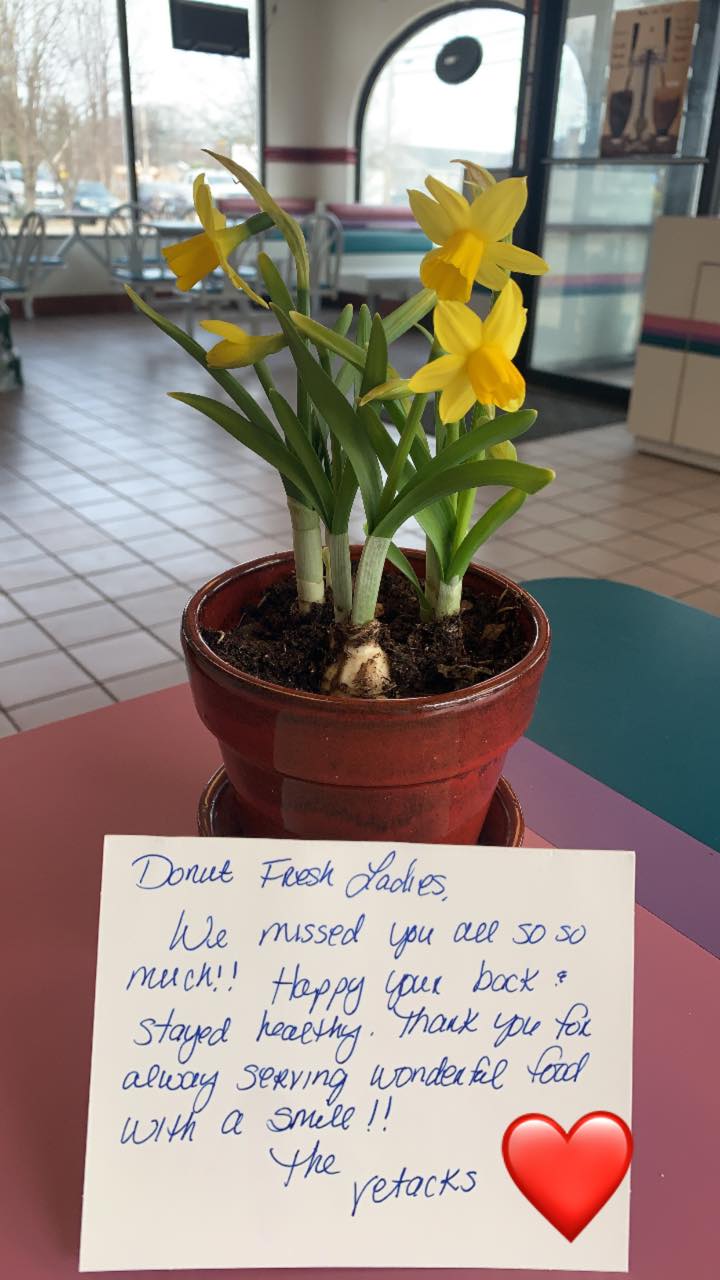 Donut Fresh Ladies,
We missed you all so so
much!! Happy your back &
stayed healthy. Thank you for
alway serving wonderful food
with a smile!!
The
Yetacks